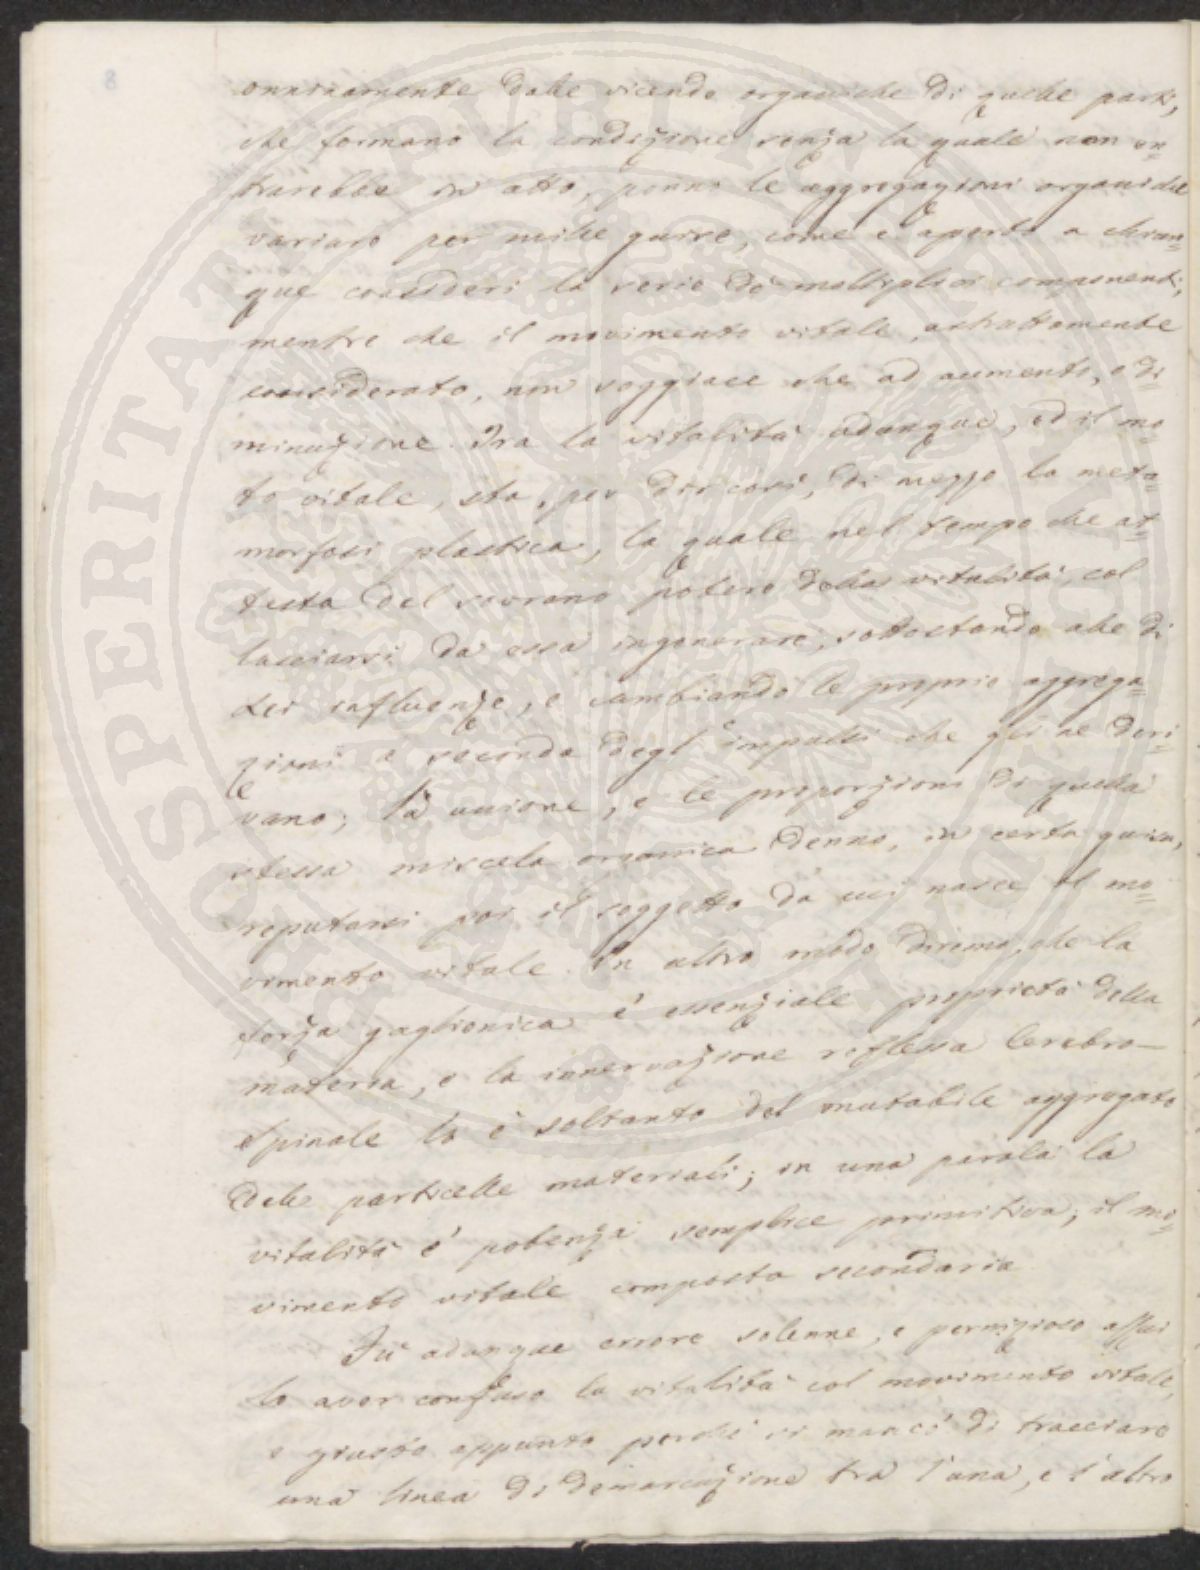 8
onninamente dalle vicende organiche di quelle parti,
che formano la condizione senza la quale non en=
trarebbe in atto, ponno le aggregazioni organiche
variare per mille guise, come è aperto a chiun=
que consideri la serie de' moltiplici componenti,
mentre che il movimento vitale, astrattamente
considerato, non soggiace che ad aumento, o di=
minuzione. Tra la vitalità adunque, ed il mo=
to vitale, sta, per dir così, di mezzo la meta=
morfosi plastica, la quale nel tempo che at=
testa del sovrano potere della vitalità, col
lasciarsi da essa ingenerare, sottostando alle di
Lei influenze, e cambiando le proprie aggrega=
zioni a seconda degl'impulsi che gli ne deri=
vano; la unione, e le proporzioni di quella
stessa miscela organica denno, in certa guisa,
reputarsi poi il soggetto da cui nasce il mo=
vimento vitale. In altro modo diremo, che la
forza gaglionica è essenziale proprietà della
materia, e la innervazione reflessa Cerebro-
Spinale lo è soltanto del mutabile aggregato
delle particelle materiali; in una parola la
vitalità è potenza semplice primitiva; il mo=
vimento vitale composta secondaria.
Fu adunque errore solenne, e pernizioso assai
lo aver confuso la vitalità col movimento vitale,
e giusto appunto perchè si mancò di tracciare
una linea di demarcazione tra l'una, e l'altro
PROSPERITATI PUBLICAE AUGENDAE